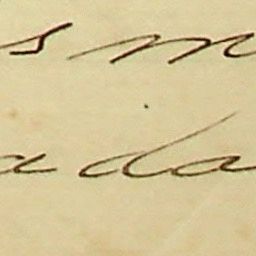 s m
ada